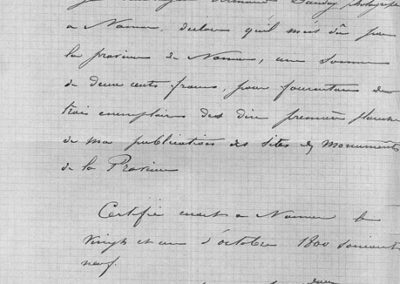 Armand Dandoy photographe
a Namur, declare qu'il m'est dû par
la province de Namur, une somme
de deux cents francs, pour fourniture de
trois exemplaires des dix premières planches
de ma publication des Sites & Monuments
de la Province
Certifié exact a Namur le
vingt et un d'octobre 1800 soixante
neuf.